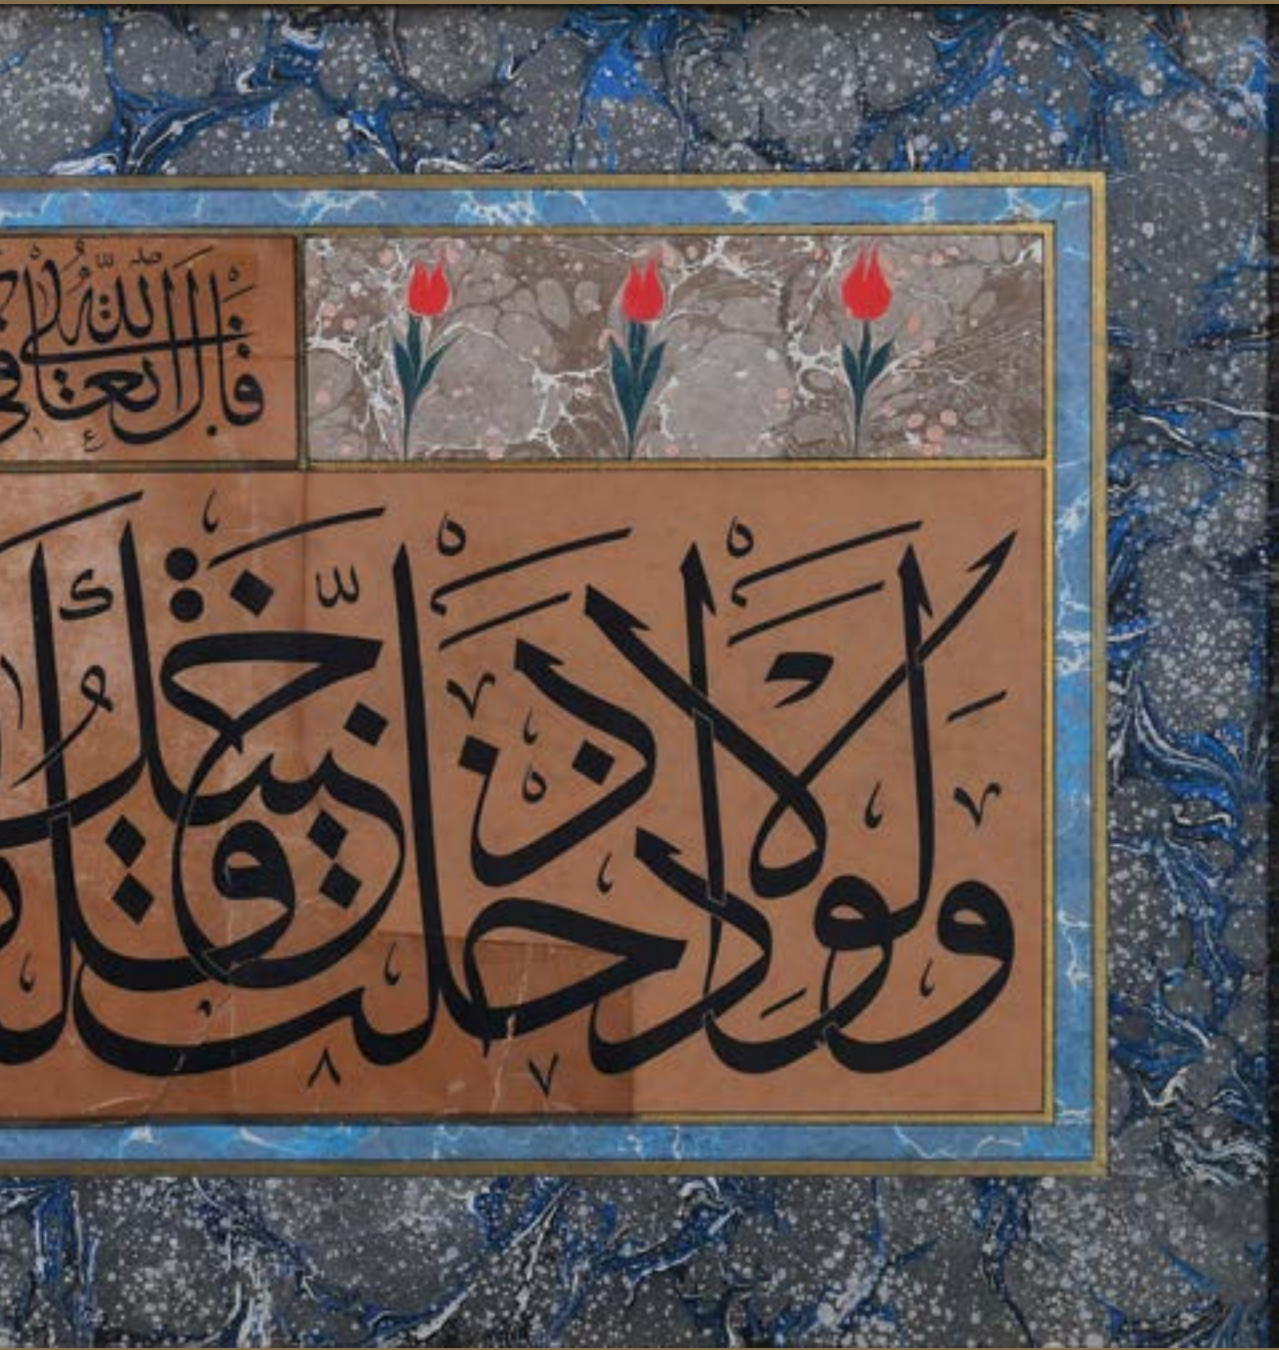 قال الله تعالى
ولولا اذ دخلت جنتك قلت